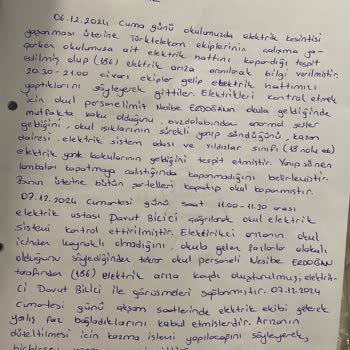 06.12.2024 Cuma günü okulumuzda elektrik kesintisi
yaşanması üzerine Türktelekom ekiplerinin çalışma ya-
parken okulumuza ait elektrik hattını kopardığı tespit
edilmiş olup (186) elektrik arıza aranılarak bilgi verilmiştir.
20.30-21.00 civarı ekipler gelip elektrik hattımızı
yaptıklarını söyleyerek gittiler. Elektrikleri kontrol etmek
için okul personelimiz Nesibe ERDOĞAN okula geldiğinde
mutfakta koku olduğunu, buzdolabından anormal sesler
geldiğini, okul ışıklarının sürekli yanıp söndüğünü, kazan
dairesi, elektrik sistem odası ve yıldızlar sınıfı
elektrik yanık kokularının geldiğini tespit etmiştir. Yanıp sönen
lambaları kapatmaya çalıştığında kapanmadığını belirlemiştir.
Bunun üzerine bütün şartelleri kapatıp okul kapanmıştır.
07.12.2024 Cumartesi günü saat 11.00-11.30 arası
elektrik ustası Davut Bicici çağrılarak okul elektrik
sistemi kontrol ettirilmiştir. Elektrikci arızanın okul
içinden kaynaklı olmadığını, okula gelen fazlarla alakalı
olduğunu söylediğinden tekrar okul personeli Nesibe ERDOĞAN
tarafından (186) elektrik arıza kaydı oluşturulmuş, elektrik-
ci Davut Bicici ile görüşmeleri sağlanmıştır. 07.12.2024
cumartesi günü akşam saatlerinde elektrik ekibi gelerek
yanlış faz bağladıklarını kabul etmişlerdir. Arızanın
düzeltilmesi için kazma işlemi yapılacağını söyleyerek